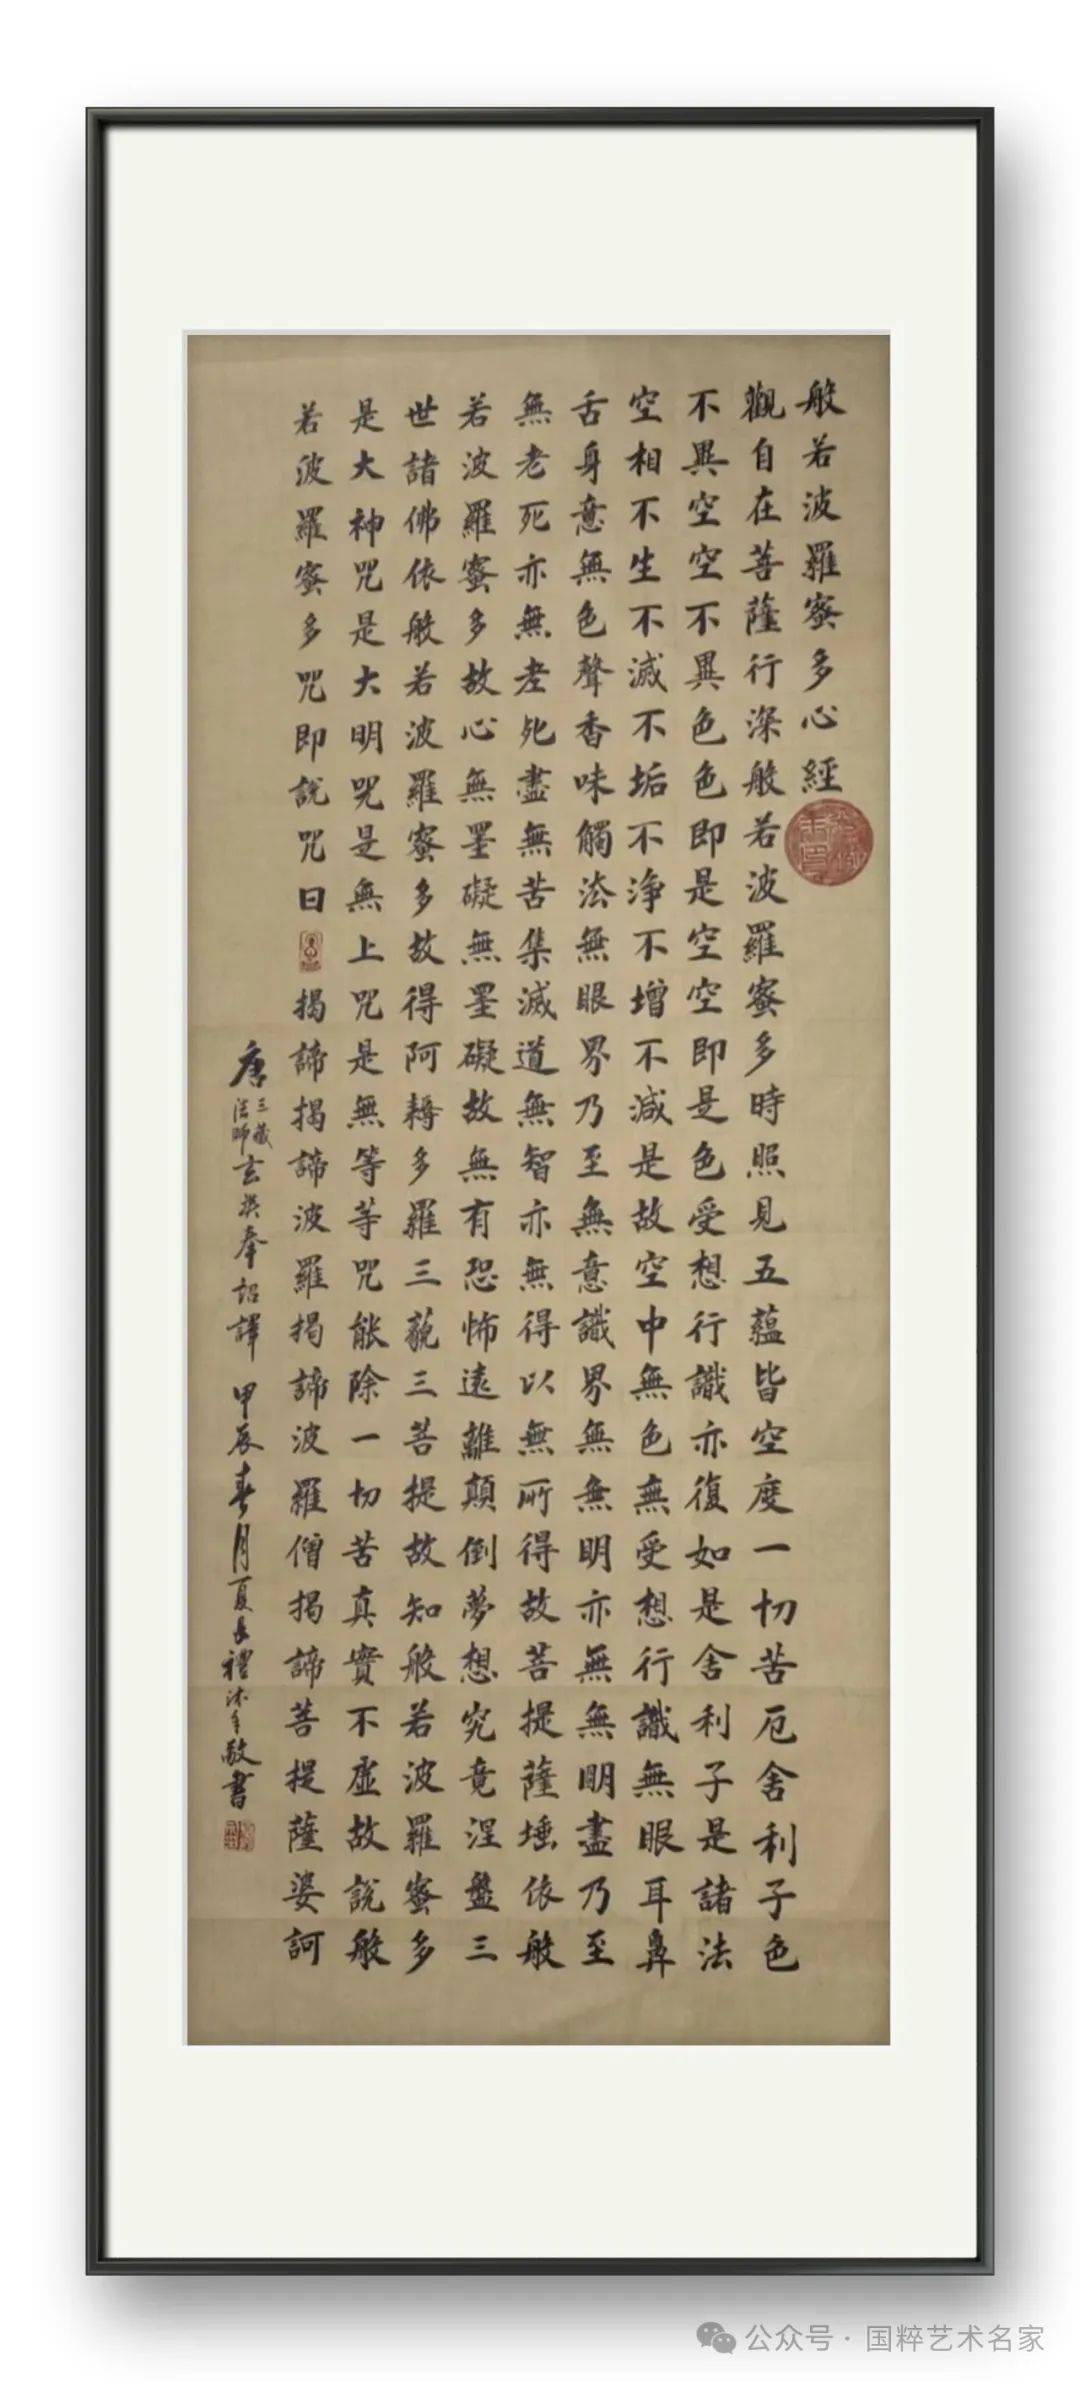 般若波羅蜜多心經
觀自在菩薩行深般若波羅蜜多時照見五蘊皆空度一切苦厄舍利子色
不異空空不異色色即是空空即是色受想行識亦復如是舍利子是諸法
空相不生不滅不垢不淨不增不減是故空中無色無受想行識無眼耳鼻
舌身意無色聲香味觸法無眼界乃至無意識界無無明亦無無明盡乃至
無老死亦無老死盡無苦集滅道無智亦無得以無所得故菩提薩埵依般
若波羅蜜多故心無罣礙無罣礙故無有恐怖遠離顛倒夢想究竟涅盤三
世諸佛依般若波羅蜜多故得阿耨多羅三藐三菩提故知般若波羅蜜多
是大神咒是大明咒是無上咒是無等等咒能除一切苦真實不虛故說般
若波羅蜜多咒即說咒曰揭諦揭諦波羅揭諦波羅僧揭諦菩提薩婆訶
唐三藏法師玄奘奉詔譯 甲辰春月夏長禮沐手敬書
公众号·国粹艺术名家